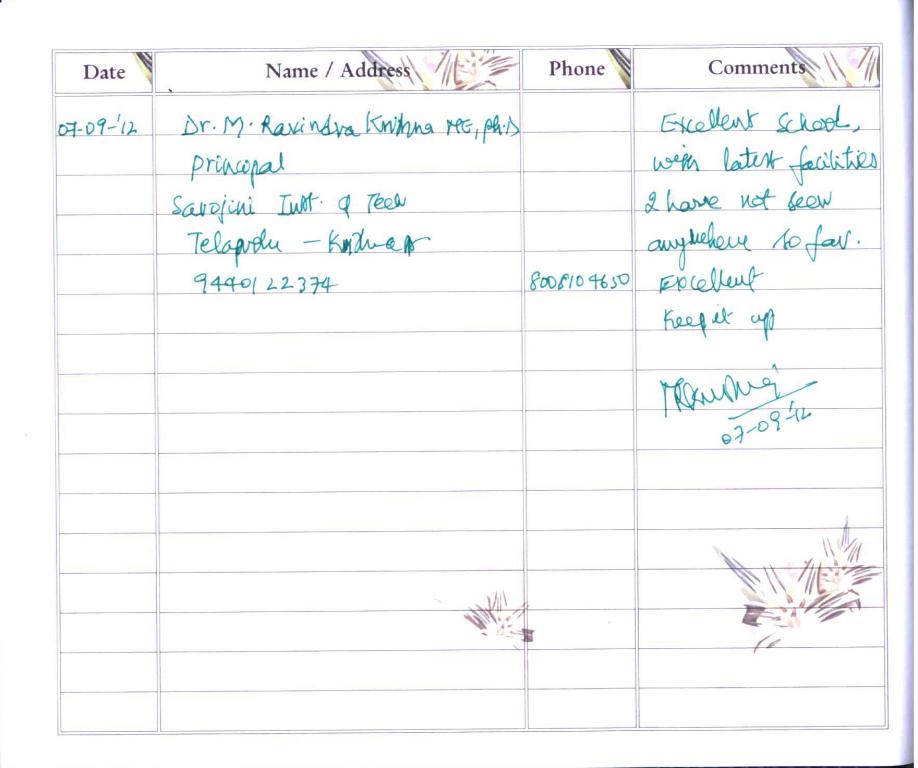 Date Name / Address Phone Comments
07-09-'12 Dr. M. Ravindra Krishna ME, Ph.D Excellent School,
Principal with latest facilities
Sarojini Inst. of Tech I have not seen
Telaprolu - Krishna anywhere so far.
9440122374 8008104650 Excellent
Keep it up
07-09-'12